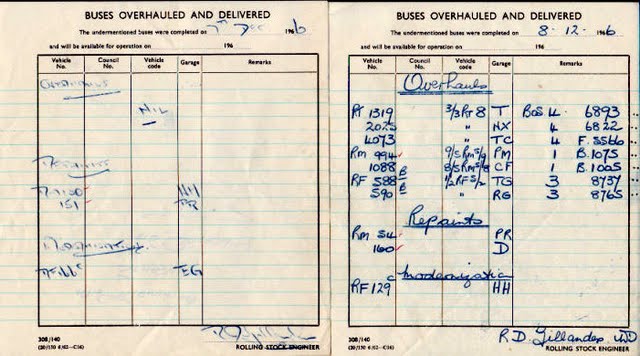 BUSES OVERHAULED AND DELIVERED
The undermentioned buses were completed on 7th Dec 1966
and will be available for operation on 196
Vehicle No. Council No. Vehicle code Garage Remarks
Overhauls
NIL
Repaints
151
308/140
ROLLING STOCK ENGINEER
BUSES OVERHAULED AND DELIVERED
The undermentioned buses were completed on 8-12- 1966
and will be available for operation on 196
Vehicle No. Council No. Vehicle code Garage Remarks
Overhauls
RT 1319 3/3RT8 T BOS 4 6893
2025 " NX 4 6822
4073 " TC 4 F.5566
RM 994 PM 1 B.1075
1088 B CF 1 B.1005
RF 588 B TG 3 8737
590 " RG 3 8765
Repaints
RM 54 PR
160 D
Modernization
RF 129 C HH
308/140
R.D. Gillanders
ROLLING STOCK ENGINEER